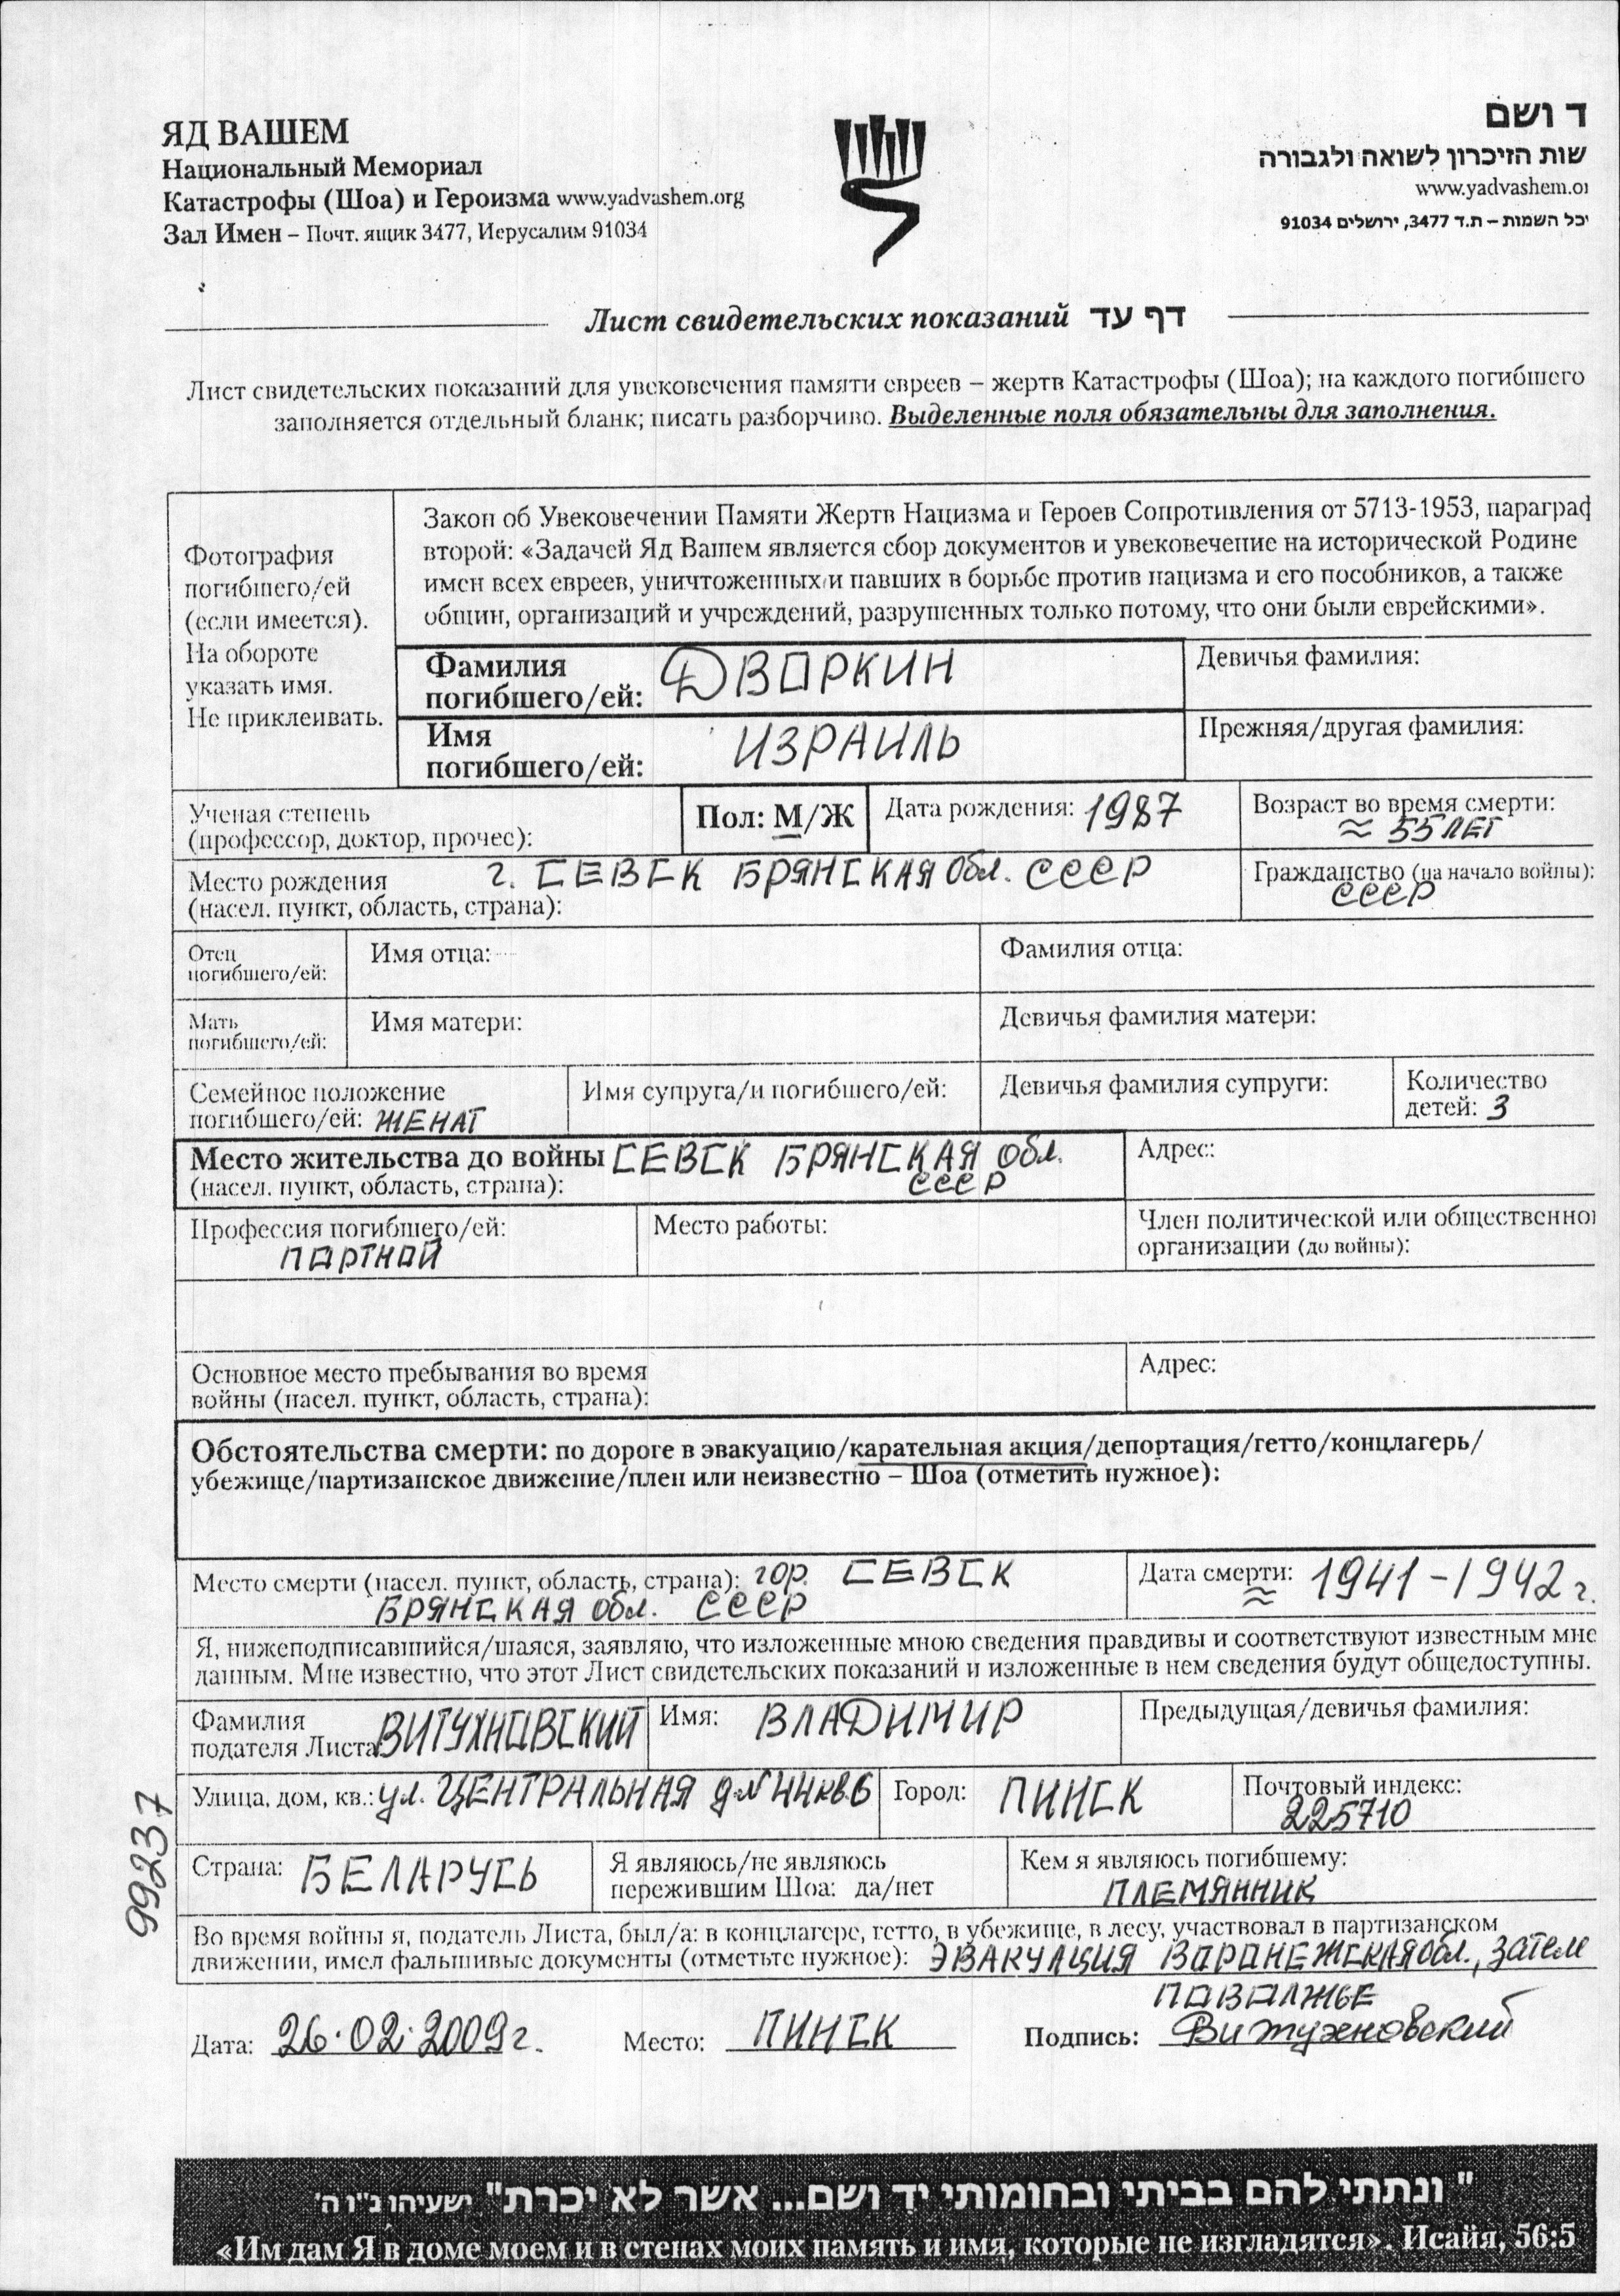 ЯД ВАШЕМ
Национальный Мемориал
Катастрофы (Шоа) и Героизма www.yadvashem.org
Зал Имен – Почт. ящик 3477, Иерусалим 91034
ד ושם
שות הזיכרון לשואה ולגבורה
www.yadvashem.or
יכל השמות – ת.ד 3477, ירושלים 91034
Лист свидетельских показаний דף עד
Лист свидетельских показаний для увековечения памяти евреев – жертв Катастрофы (Шоа); на каждого погибшего
заполняется отдельный бланк; писать разборчиво. Выделенные поля обязательны для заполнения.
Фотография
погибшего/ей
(если имеется).
На обороте
указать имя.
Не приклеивать.
Закон об Увековечении Памяти Жертв Нацизма и Героев Сопротивления от 5713-1953, параграф
второй: «Задачей Яд Вашем является сбор документов и увековечение на исторической Родине
имен всех евреев, уничтоженных и павших в борьбе против нацизма и его пособников, а также
общин, организаций и учреждений, разрушенных только потому, что они были еврейскими».
Фамилия
погибшего/ей: ДВОРКИН
Девичья фамилия:
Имя
погибшего/ей: ИЗРАИЛЬ
Прежняя/другая фамилия:
Ученая степень
(профессор, доктор, прочее):
Пол: М/Ж
Дата рождения: 1987
Возраст во время смерти:
≈ 55 ЛЕТ
Место рождения г. СЕВСК БРЯНСКАЯ обл. СССР
(насел. пункт, область, страна):
Гражданство (на начало войны):
СССР
Отец
погибшего/ей:
Имя отца:
Фамилия отца:
Мать
погибшего/ей:
Имя матери:
Девичья фамилия матери:
Семейное положение
погибшего/ей: ЖЕНАТ
Имя супруга/и погибшего/ей:
Девичья фамилия супруги:
Количество
детей: 3
Место жительства до войны СЕВСК БРЯНСКАЯ обл.
(насел. пункт, область, страна): СССР
Адрес:
Профессия погибшего/ей:
ПОРТНОЙ
Место работы:
Член политической или общественной
организации (до войны):
Основное место пребывания во время
войны (насел. пункт, область, страна):
Адрес:
Обстоятельства смерти: по дороге в эвакуацию/карательная акция/депортация/гетто/концлагерь/
убежище/партизанское движение/плен или неизвестно – Шоа (отметить нужное):
Место смерти (насел. пункт, область, страна): гор. СЕВСК
БРЯНСКАЯ обл. СССР
Дата смерти: ≈ 1941-1942 г.
Я, нижеподписавшийся/шаяся, заявляю, что изложенные мною сведения правдивы и соответствуют известным мне
данным. Мне известно, что этот Лист свидетельских показаний и изложенные в нем сведения будут общедоступны.
Фамилия
подателя Листа ВИТУХНОВСКИЙ
Имя: ВЛАДИМИР
Предыдущая/девичья фамилия:
Улица, дом, кв.: ул. ЦЕНТРАЛЬНАЯ д.N 44 кв.6
Город: ПИНСК
Почтовый индекс:
225710
Страна: БЕЛАРУСЬ
Я являюсь/не являюсь
пережившим Шоа: да/нет
Кем я являюсь погибшему:
ПЛЕМЯННИК
Во время войны я, податель Листа, был/а: в концлагере, гетто, в убежище, в лесу, участвовал в партизанском
движении, имел фальшивые документы (отметьте нужное): ЭВАКУАЦИЯ ВОРОНЕЖСКАЯ обл., затем
ПОВОЛЖЬЕ
Дата: 26.02.2009 г. Место: ПИНСК Подпись: Витухновский
99237
"ונתתי להם בביתי ובחומותי יד ושם... אשר לא יכרת" ישעיהו נ"ו ה'
«Им дам Я в доме моем и в стенах моих память и имя, которые не изгладятся». Исайя, 56:5